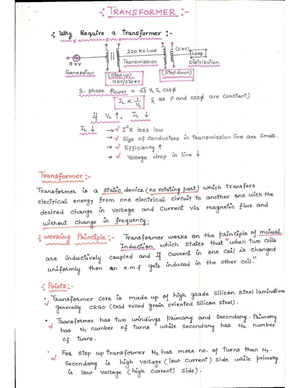 :- TRANSFORMER :-
:- Why Require a Transformer :-
220 KV Line
11KV
Load
11 KV
Generation
(Step up)
Transmission
(Step down)
Distribution
11KV/220KV
3- phase Power = √3 VL IL cosϕ
IL ∝ 1/VL { as P and cosϕ are constant)
if VL ↑, IL ↓
IL ↓ → √ I²R loss low
→ √ Size of Conductors in Transmission line are Small.
→ √ Efficiency ↑
→ √ Voltage drop in line ↓
Transformer :-
Transformer is a static device (no rotating part) which transfers
electrical energy from one electrical circuit to another one with the
desired change in voltage and Current via magnetic flux and
without change in frequency.
:- Working Principle :- Transformer works on the principle of mutual
Induction which states that "when two coils
are inductively coupled and if current in one coil is changed
uniformly then an e.m.f gets induced in the other coil."
:- Points :-
√ Transformer Core is made up of high grade silicon steel laminations
generally CRGO (Cold rolled grain oriented silicon steel).
√ Transformer has two windings Primary and Secondary. Primary
has N1 number of turns while Secondary has N2 number
of turns.
√ For Step up Transformer N2 has more no. of Turns than N1.
Secondary is high voltage (low Current) side while primary
is low voltage (high Current) side.